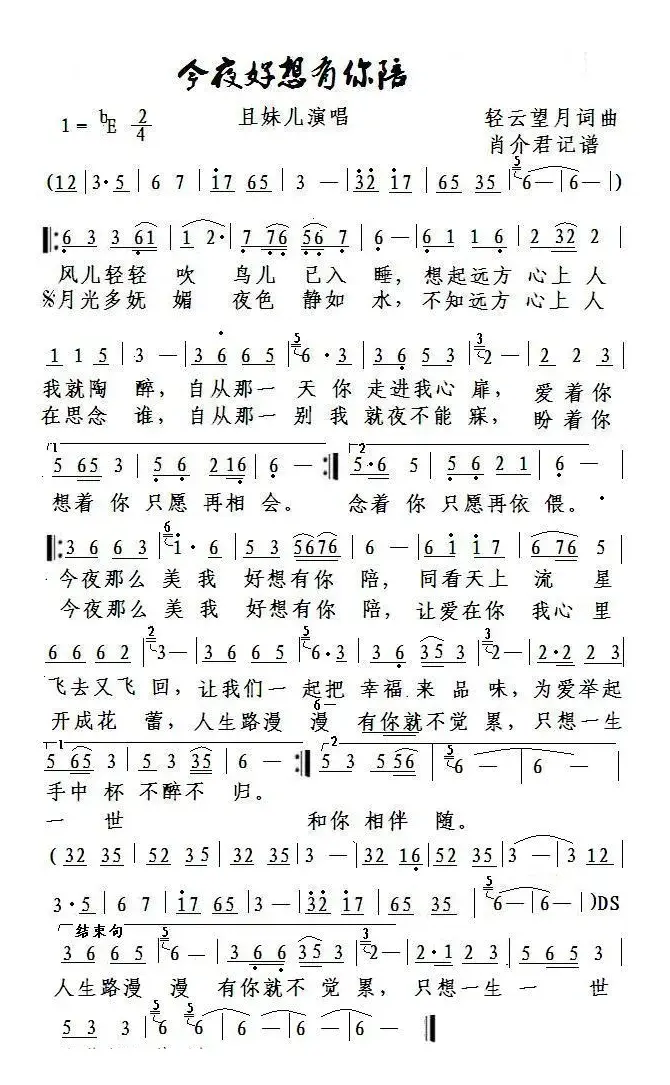 今夜好想有你陪
1= bE 2/4 且妹儿演唱 轻云望月词曲
肖介君记谱
(12 | 3·5 | 6 7 | i7 65 | 3 — | 32 i7 | 65 35 | 6 — | 6 — |)
6 3 3 61 | 1 2· | 7 76 56 7 | 6 — | 6 1 1 6 | 2 32 2 |
风儿轻轻 吹 鸟儿 已入 睡，想起远方 心上人
月光多妩 媚 夜色 静如 水，不知远方 心上人
1 1 5 | 3 — | 3 6 6 5 | 6·3 | 3 6 5 3 | 2 — | 2 2 3 |
我就陶 醉，自从那一 天你 走进我心 扉，爱着你
在思念 谁，自从那一 别我 就夜不能 寐，盼着你
5 65 3 | 5 6 2 16 | 6 — :| 5·6 5 | 5 6 2 1 | 6 — |
想着 你 只愿 再相 会。 念着 你 只愿再依 偎。
3 6 6 3 | i·6 | 5 3 5676 | 6 — | 6 i i 7 | 6 76 5 |
今夜那么 美我 好想有你 陪，同看天上 流 星
今夜那么 美我 好想有你 陪，让爱在你 我心里
6 6 6 2 | 3 — | 3 6 6 5 | 6·3 | 3 6 35 3 | 2 — | 2·2 2 3 |
飞去又飞 回，让我们一 起把 幸福 来 品 味，为爱举起
6 —
开成花 蕾，人生路漫 漫 有你就不觉 累，只想一生
5 65 3 | 5 3 35 | 6 — :| 5 3 5 56 | 6 — | 6 — |
手中 杯 不醉不 归。
一 世 和你 相伴 随。
(32 35 | 52 35 | 6 56 | 3 — | 32 16 | 52 35 | 3 — | 3 12 |
3·5 | 6 7 | i7 65 | 3 — | 32 i7 | 65 35 | 6 — | — )DS
结束句
3 6 6 5 | 6 — | 3 6 6 35 3 | 2 — | 2·1 2 3 | 5 — | 5 3 |
人生路漫 漫 有你就不 觉 累，只想一生 一 世
5 3 | 5 6 | 6 — | 6 — ||